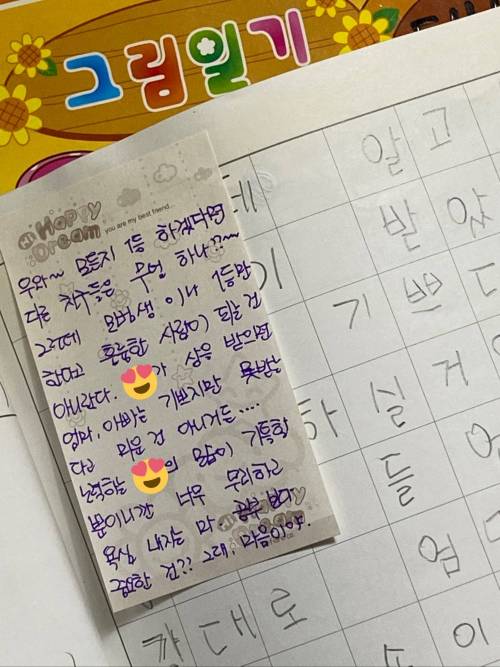 그림일기
Happy
Dream
you are my best friend...
우와~ 뭐든지 1등 하겠다면
다른 친구들은 무엇 하나??~~
그런데 이나 1등만
한다고 훌륭한 사람이 되는 건
아니란다. 가 상을 받으면
엄마, 아빠는 기쁘지만 못받는
다고 미운 건 아니거든....
노력하는 의 맘이 기특할
뿐이니까 너무 무리하고
욕심 내지 마 공부보다
중요한 건?? 그래, 마음이야.
알 고
받 았
기 쁘 다
하 실 거
들
엄
대 로
이